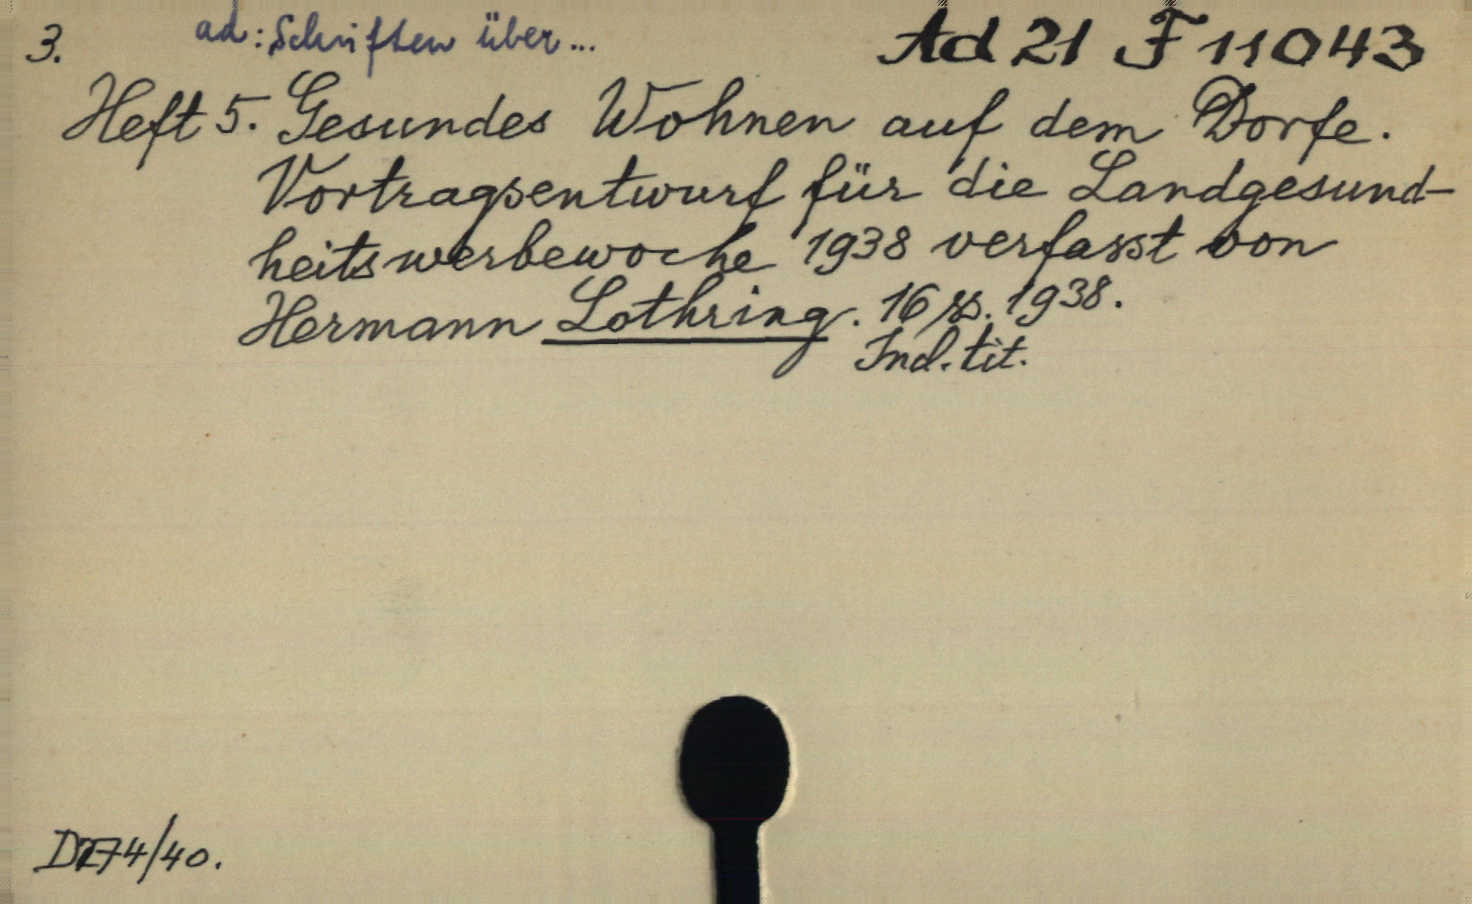 3.
ad: Schriften über...
Ad 21 F 11043
Heft 5. Gesundes Wohnen auf dem Dorfe.
Vortragsentwurf für die Landgesund-
heitswerbewoche 1938 verfasst von
Hermann Lothring. 16 ss. 1938.
Ind. tit.
D274/40.